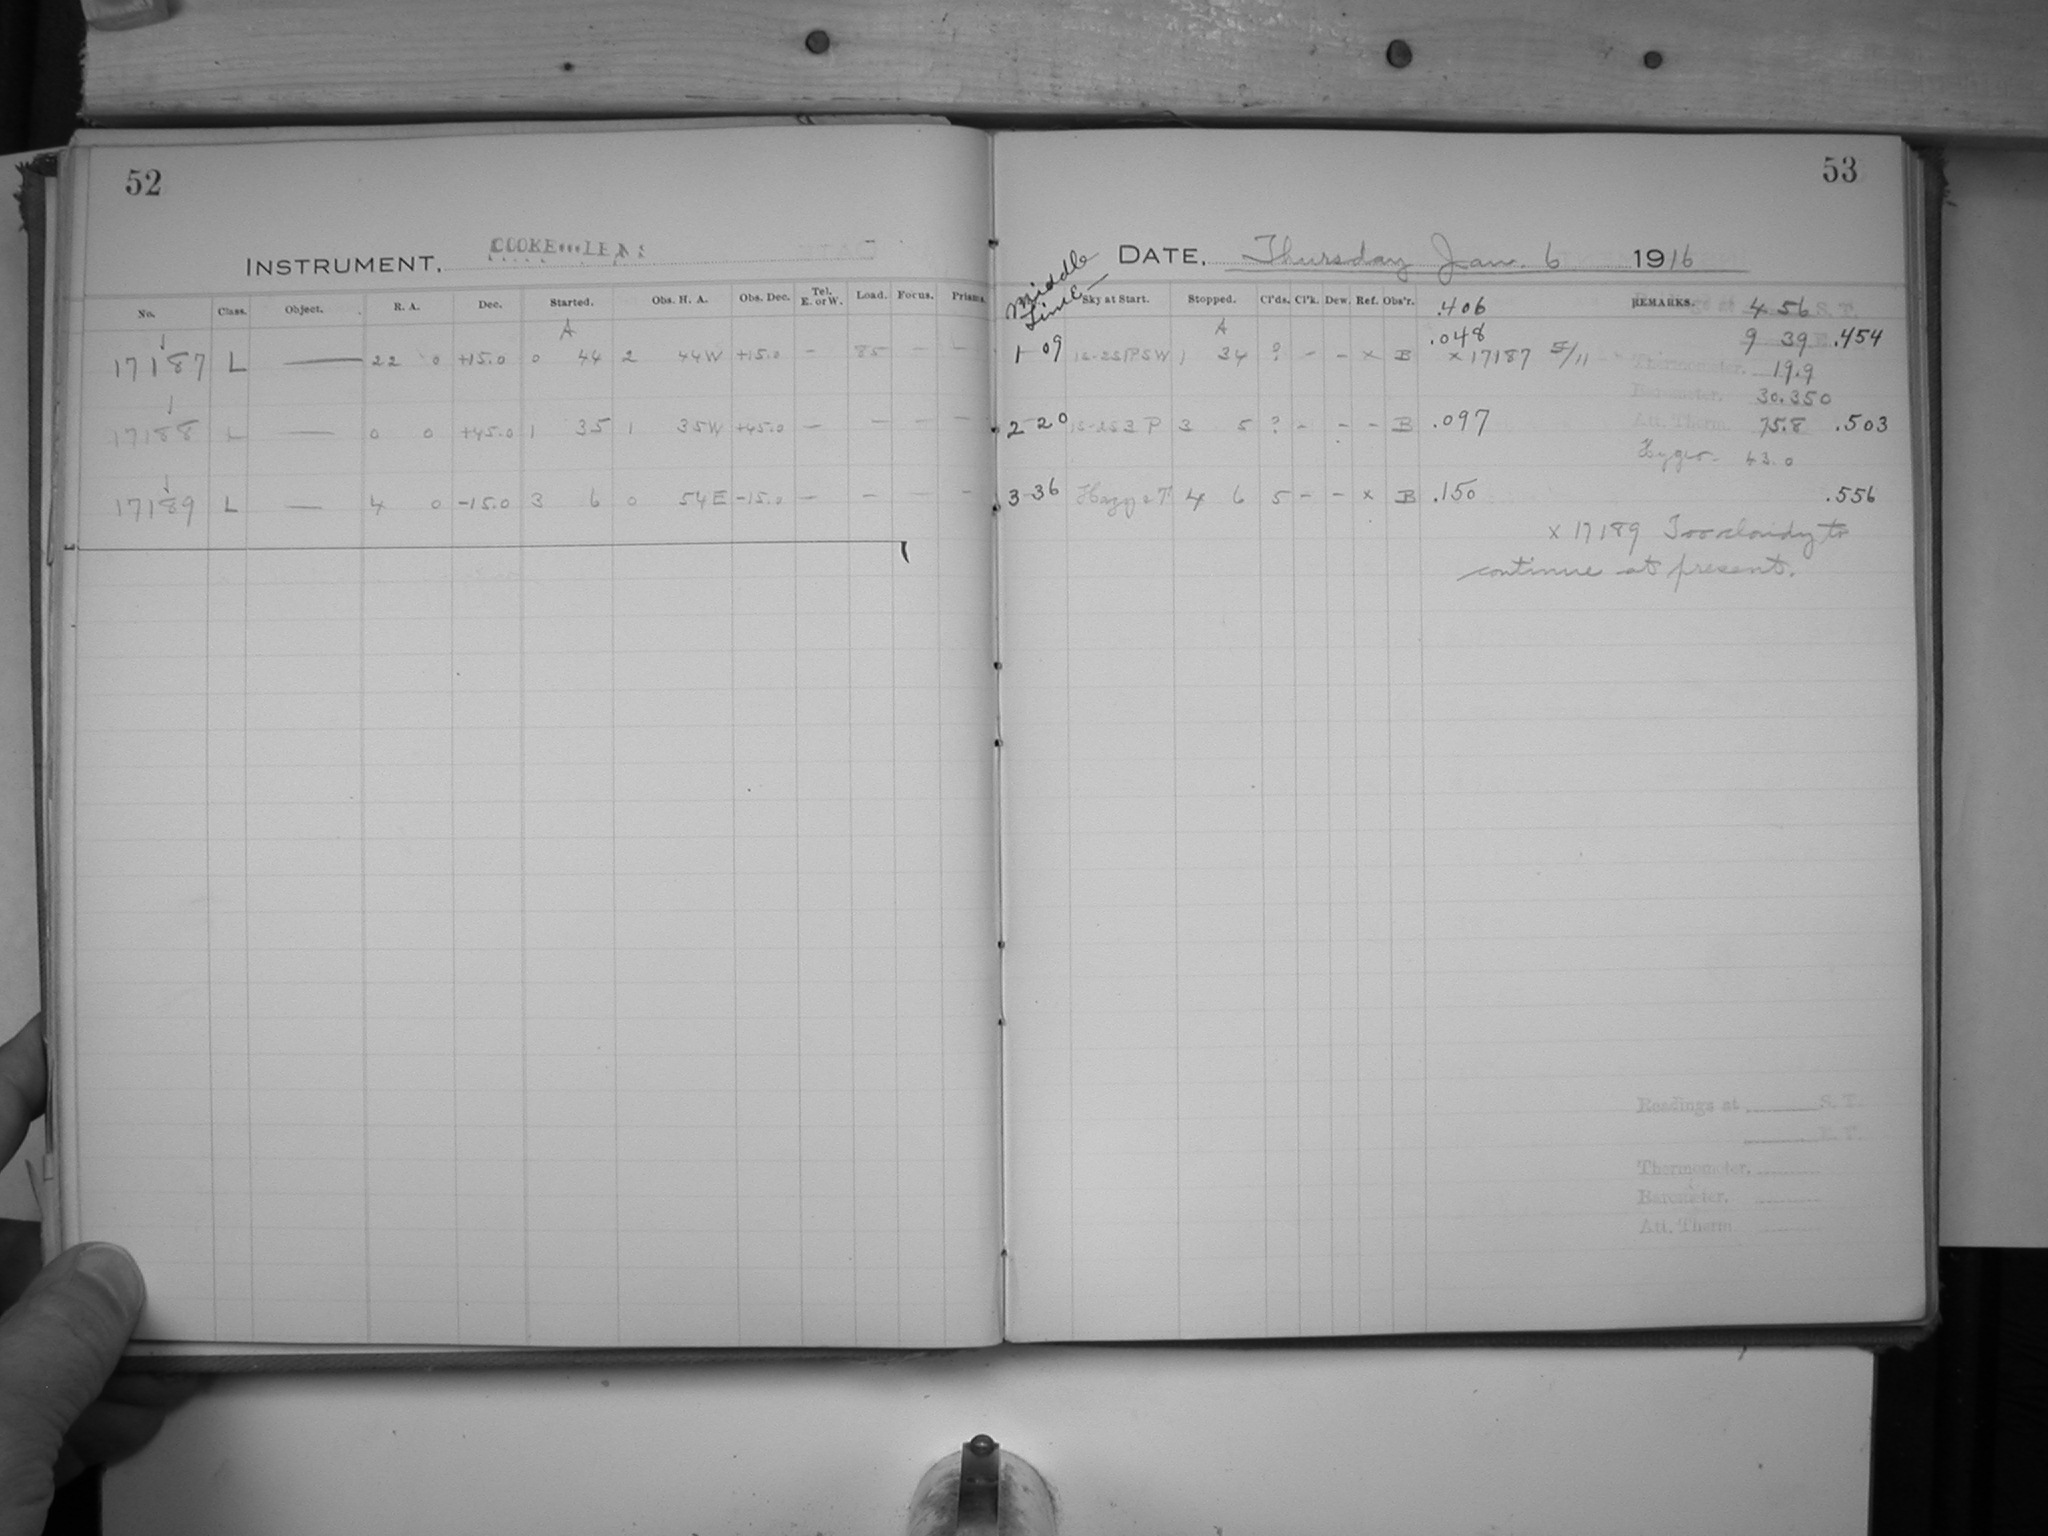 52
INSTRUMENT. COOKE LENS
No. Class. Object. R. A. Dec. Started. Obs. H. A. Obs. Dec. Tel. E. or W. Load. Focus. Prisms.
A
17187 L — 22 0 +15.0 0 44 2 44W +15.0 – 85 – –
17188 L — 0 0 +45.0 1 35 1 35W +45.0 – – – –
17189 L — 4 0 -15.0 3 6 0 54E -15.0 – – – –
53
DATE. Thursday Jan. 6 1916
Middle Time
Sky at Start. Stopped. Cl'ds. Cl'k. Dew. Ref. Obs'r. REMARKS.
.406 4 56 S. T.
A .048 9 39 .454
1 09 1 34 ? – – x B x 17187 5/11
Thermometer. 19.9
Barometer. 30.350
2 20 3 5 ? – – – B .097 Att. Therm 75.8 .503
Hygro. 43.0
3 36 4 6 5 – – x B .150 .556
x 17189 Too cloudy to
continue at present.
Readings at S. T.
E. T.
Thermometer.
Barometer.
Att. Therm